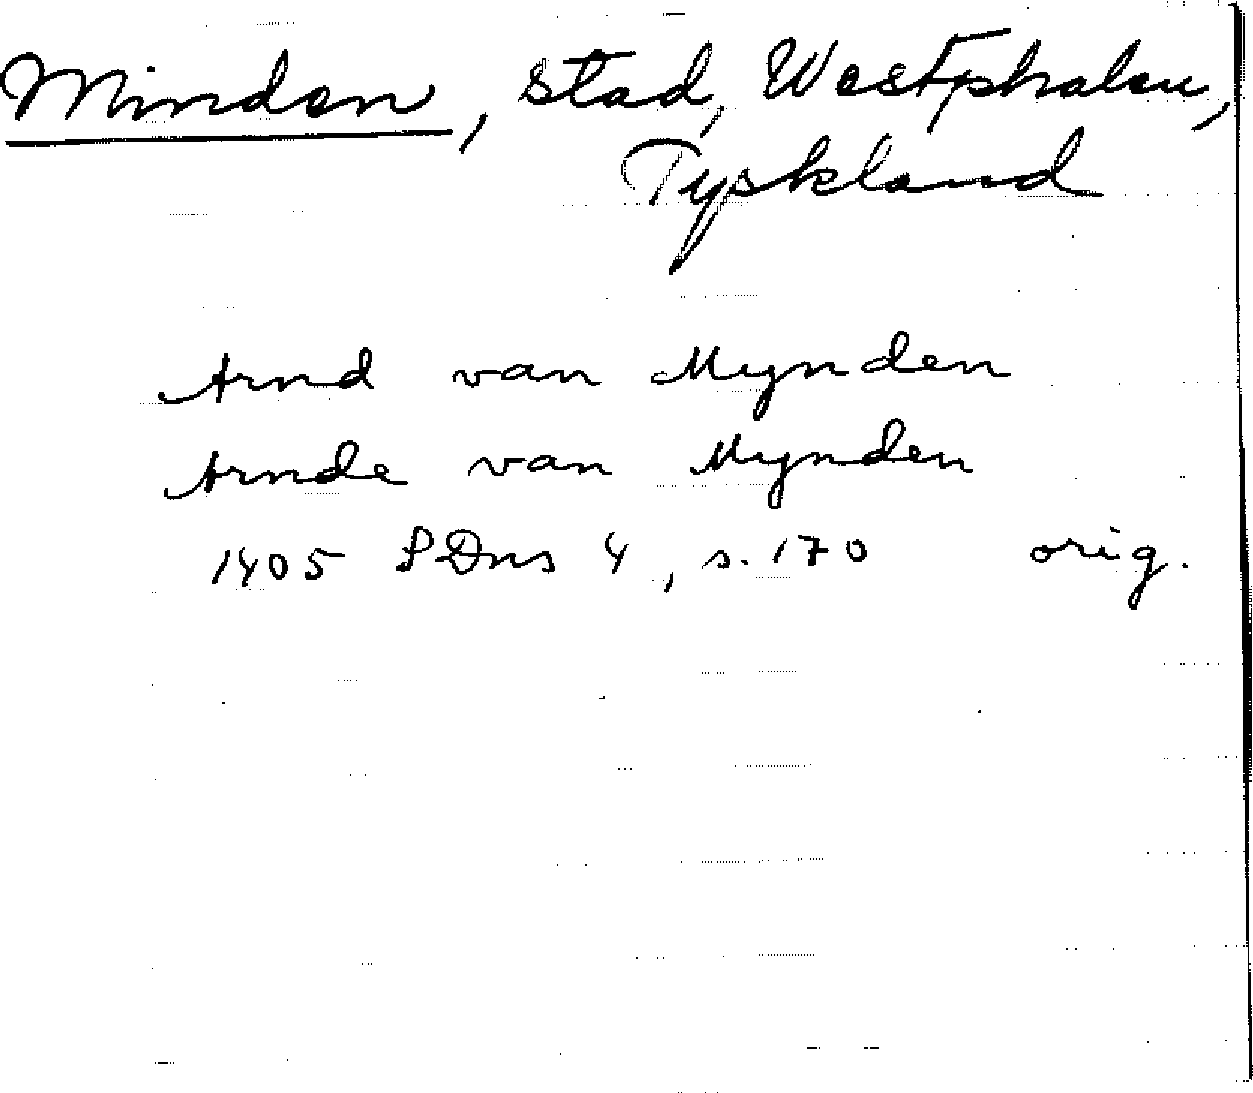 Minden, stad, Westphalen,
Tyskland
Arnd van Mynden
Arnde van Mynden
1405 SDns 4, s. 170 orig.